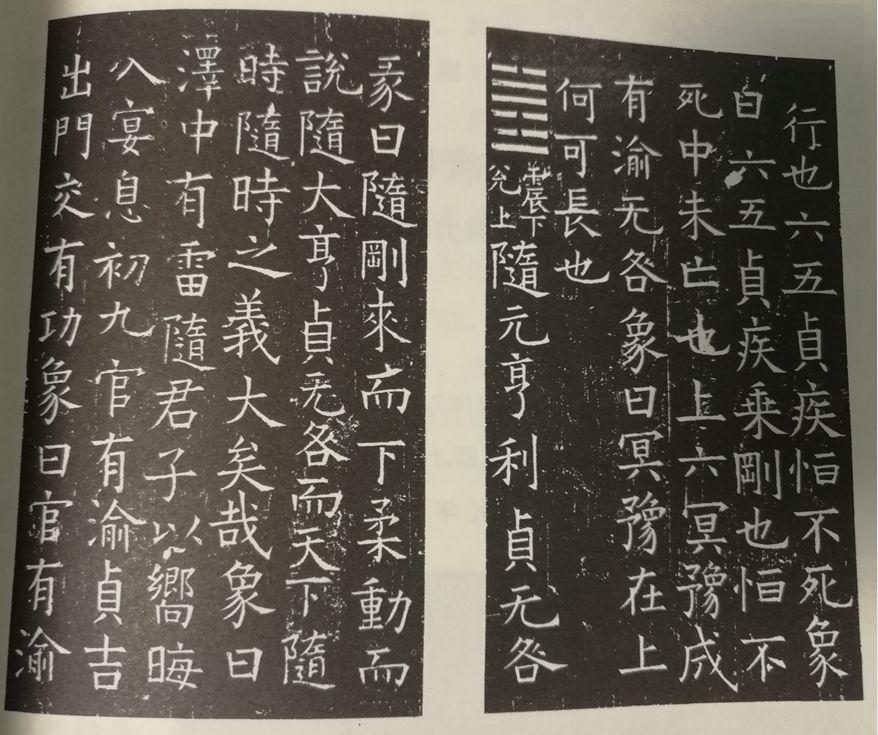 行也六五貞疾恒不死象
曰六五貞疾乗剛也恒不
死中未亡也上六冥豫成
有渝无咎象曰冥豫在上
何可長也
震下
兊上
隨元亨利貞无咎
彖曰隨剛來而下柔動而
說隨大亨貞无咎而天下隨
時隨時之義大矣哉象曰
澤中有雷隨君子以嚮晦
入宴息初九官有渝貞吉
出門交有功象曰官有渝